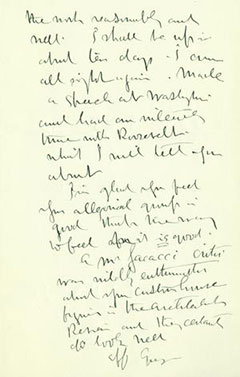 the work reasonably and
well. I shall be up in
about ten days. I am
all right again. Made
a speech at Washington
and had an interesting
time with Roosevelt
which I will tell you
about
I'm glad you feel
your allegorical group is
good that's the way
to feel it is good.
A Mr Jaccaci critic
was wildly enthusiastic
about your Custom house
figures in the Architectural
Review and they certainly
do look well
aff Gus